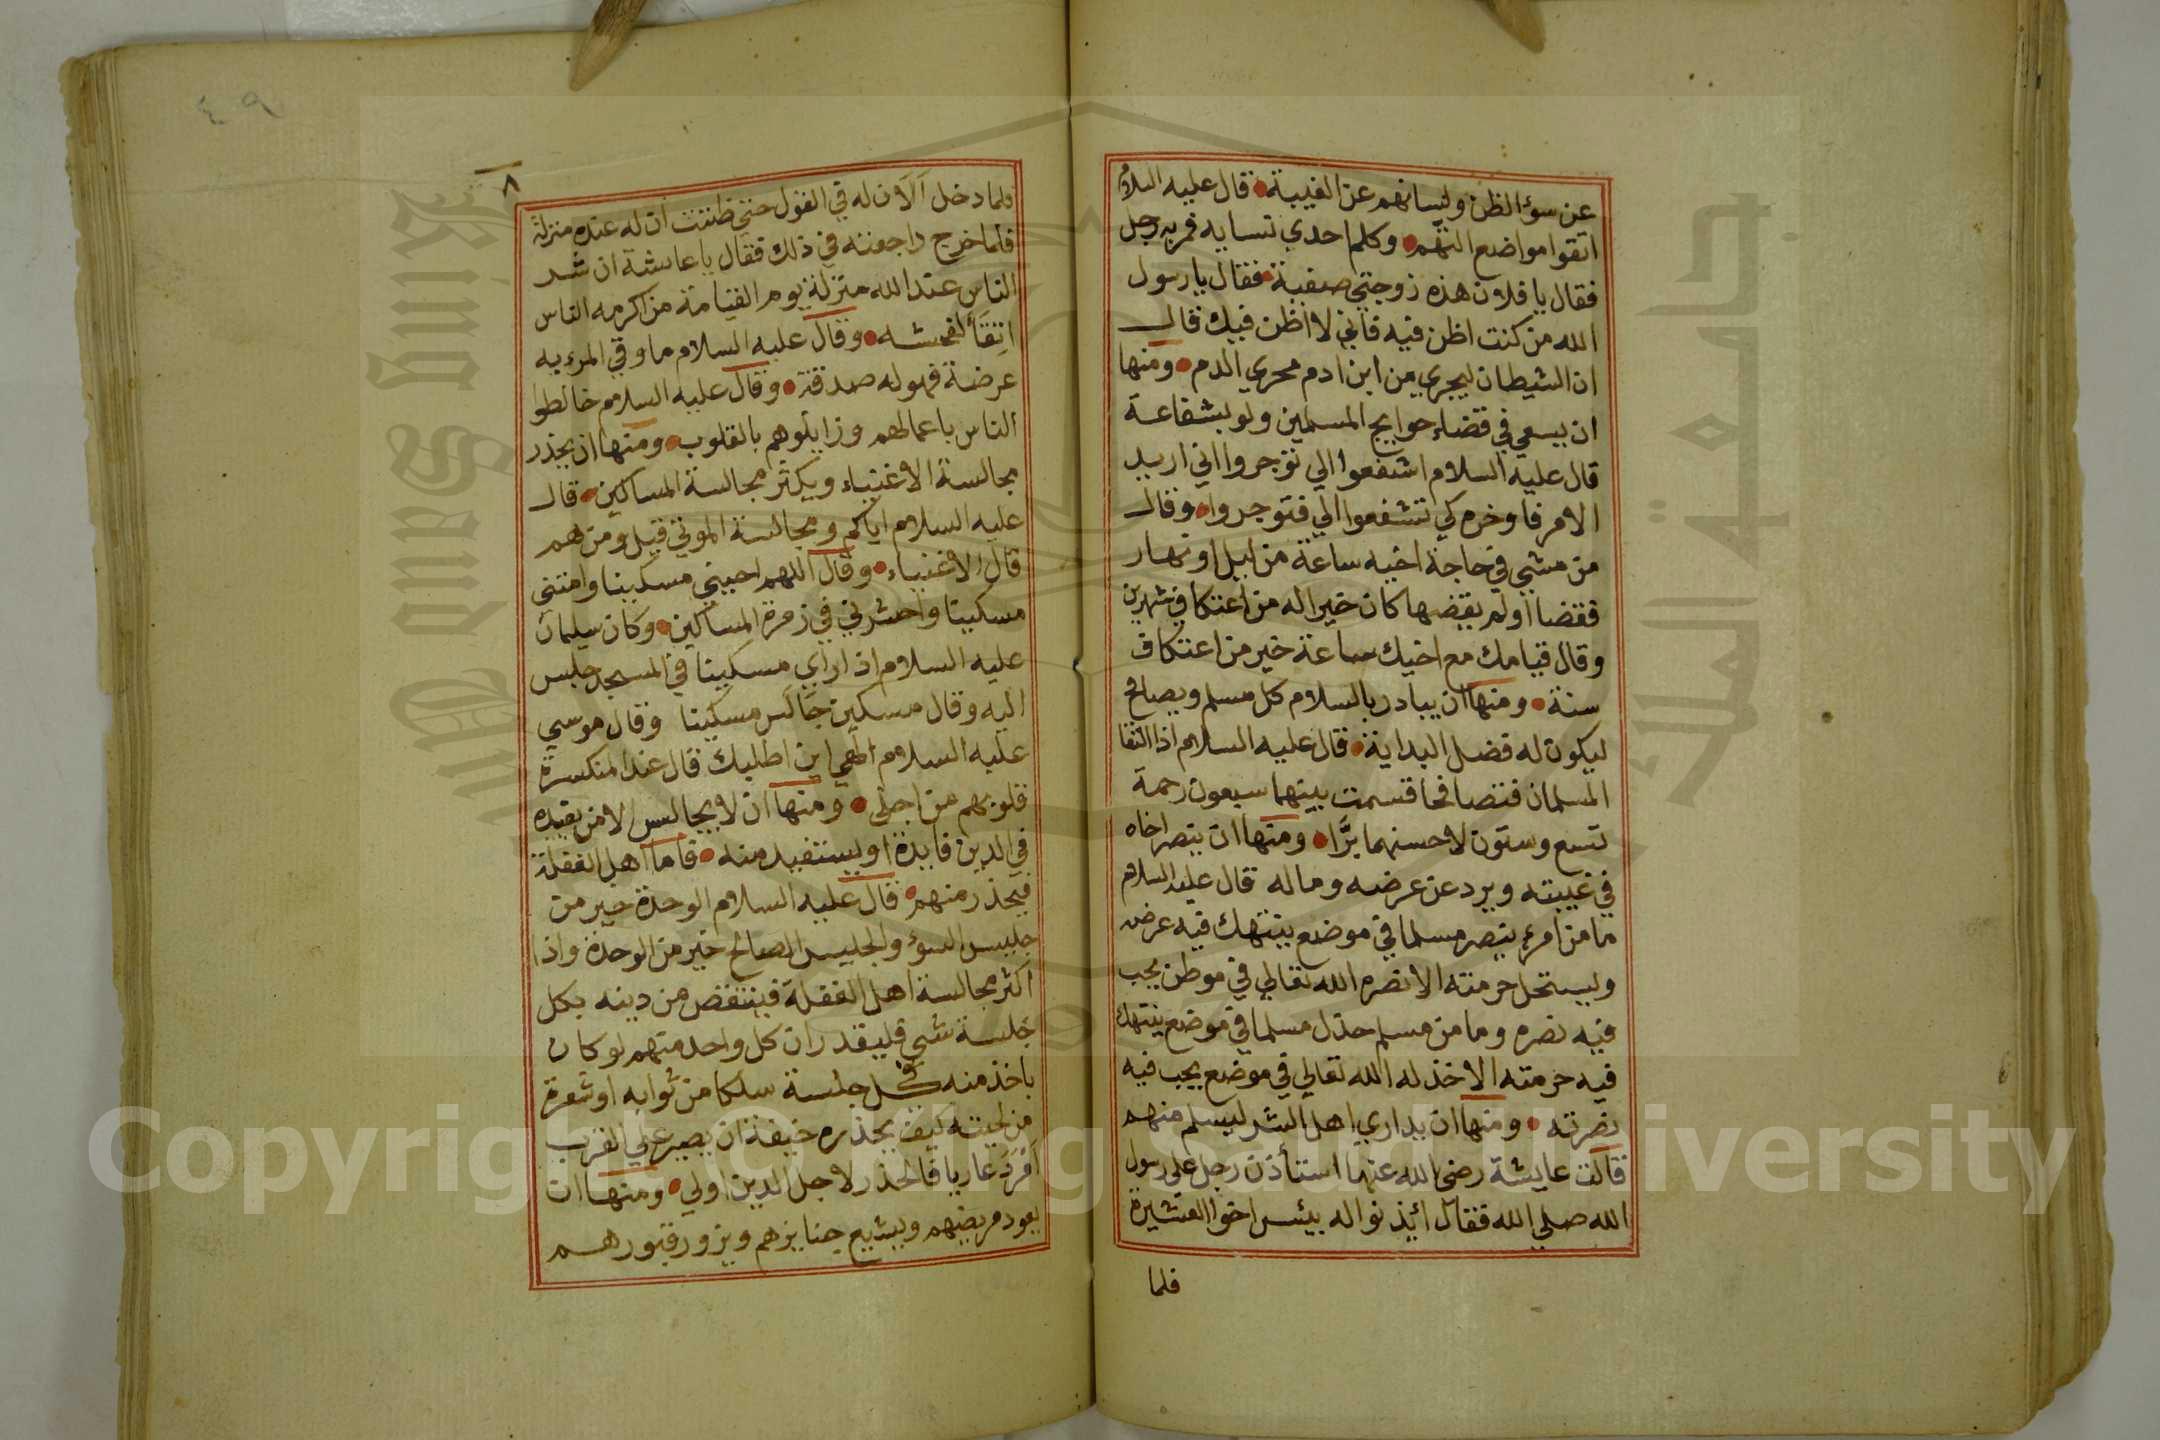 عن سوء الظن ولسانهم عن الغيبة قال عليه السلام
اتقوا مواضع التهم وكلم احدي نسايه فمر به رجل
فقال يا فلان هذه زوجتي صفية فقال يا رسول
الله من كنت اظن فيه فاني لا اظن فيك قال
ان الشيطان ليجري من ابن ادم مجري الدم ومنها
ان يسعي في قضاء حوايج المسلمين ولو بشفاعة
قال عليه السلام اشفعوا الي تؤجروا اني اريد
الامر فاوخره كي تشفعوا الي فتوجروا وقال
من مشي في حاجة اخيه ساعة من ليل او نهار
فقضا او لم يقضها كان خيرا له من اعتكاف شهرين
وقال قيامك مع اخيك ساعة خير من اعتكاف
سنة ومنها ان يبادر بالسلام كل مسلم ويصافح
ليكون له فضل البداية قال عليه السلام اذا التقا
المسلمان فتصافحا قسمت بينهما سبعون رحمة
تسع وستون لاحسنهما برا ومنها ان ينصر اخاه
في غيبته ويرد عن عرضه وماله قال عليه السلام
ما من امرء ينصر مسلما في موضع ينتهك فيه عرضه
ويستحل حرمته الا نصره الله تعالي في موطن يحب
فيه نصره وما من مسلم خذل مسلما في موضع ينتهك
فيه حرمته الا خذله الله تعالي في موضع يحب فيه
نصرته ومنها ان يداري اهل الشر ليسلم منهم
قالت عايشة رضي الله عنها استأذن رجل على رسول
الله صلي الله فقال ائذنوا له بيئس اخوا العشيرة
فلما
٤٩
٨
فلما دخل آلان له في القول حتي ظننت ان له عنده منزلة
فلما خرج راجعته في ذلك فقال يا عايشة ان شر
الناس عند الله منزلة يوم القيامة من اكرمه الناس
اتقأ لفحشه وقال عليه السلام ما وقي المرء به
عرضة فهو له صدقة وقال عليه السلام خالطوا
الناس باعمالهم وزايلوهم بالقلوب ومنها ان يحذر
مجالسة الاغنياء ويكثر مجالسة المساكين قال
عليه السلام اياكم ومجالسة الموتي قيل ومن هم
قال الاغنياء وقال اللهم احيني مسكينا وامتني
مسكينا واحشرني في زمرة المساكين وكان سليمان
عليه السلام اذا رأي مسكينا في المسجد جلس
اليه وقال مسكين جالس مسكينا وقال موسي
عليه السلام الهي اين اطلبك قال عند المنكسرة
قلوبهم من اجلي ومنها ان لا يجالس الا من يفيده
في الدين فايدة او يستفيد منه فاما اهل الغفلة
فيحذر منهم قال عليه السلام الوحدة خير من
جليس السوء والجليس الصالح خير من الوحدة واذا
اكثر مجالسة اهل الغفلة فينتقض من دينه بكل
جلسة شي فليقدر ان كل واحد منهم لو كان
ياخذ منه كل جلسة سلكا من ثوابه او شعرة
من لحيته كيف يحذره خيفة ان يصير علي القرب
امرد عاريا فالحذر لاجل الدين اولي ومنها ان
يعود مريضهم ويشيع جنايزهم ويزور قبورهم
Copyright © King Saud University
جامعة الملك سعود
King Saud University